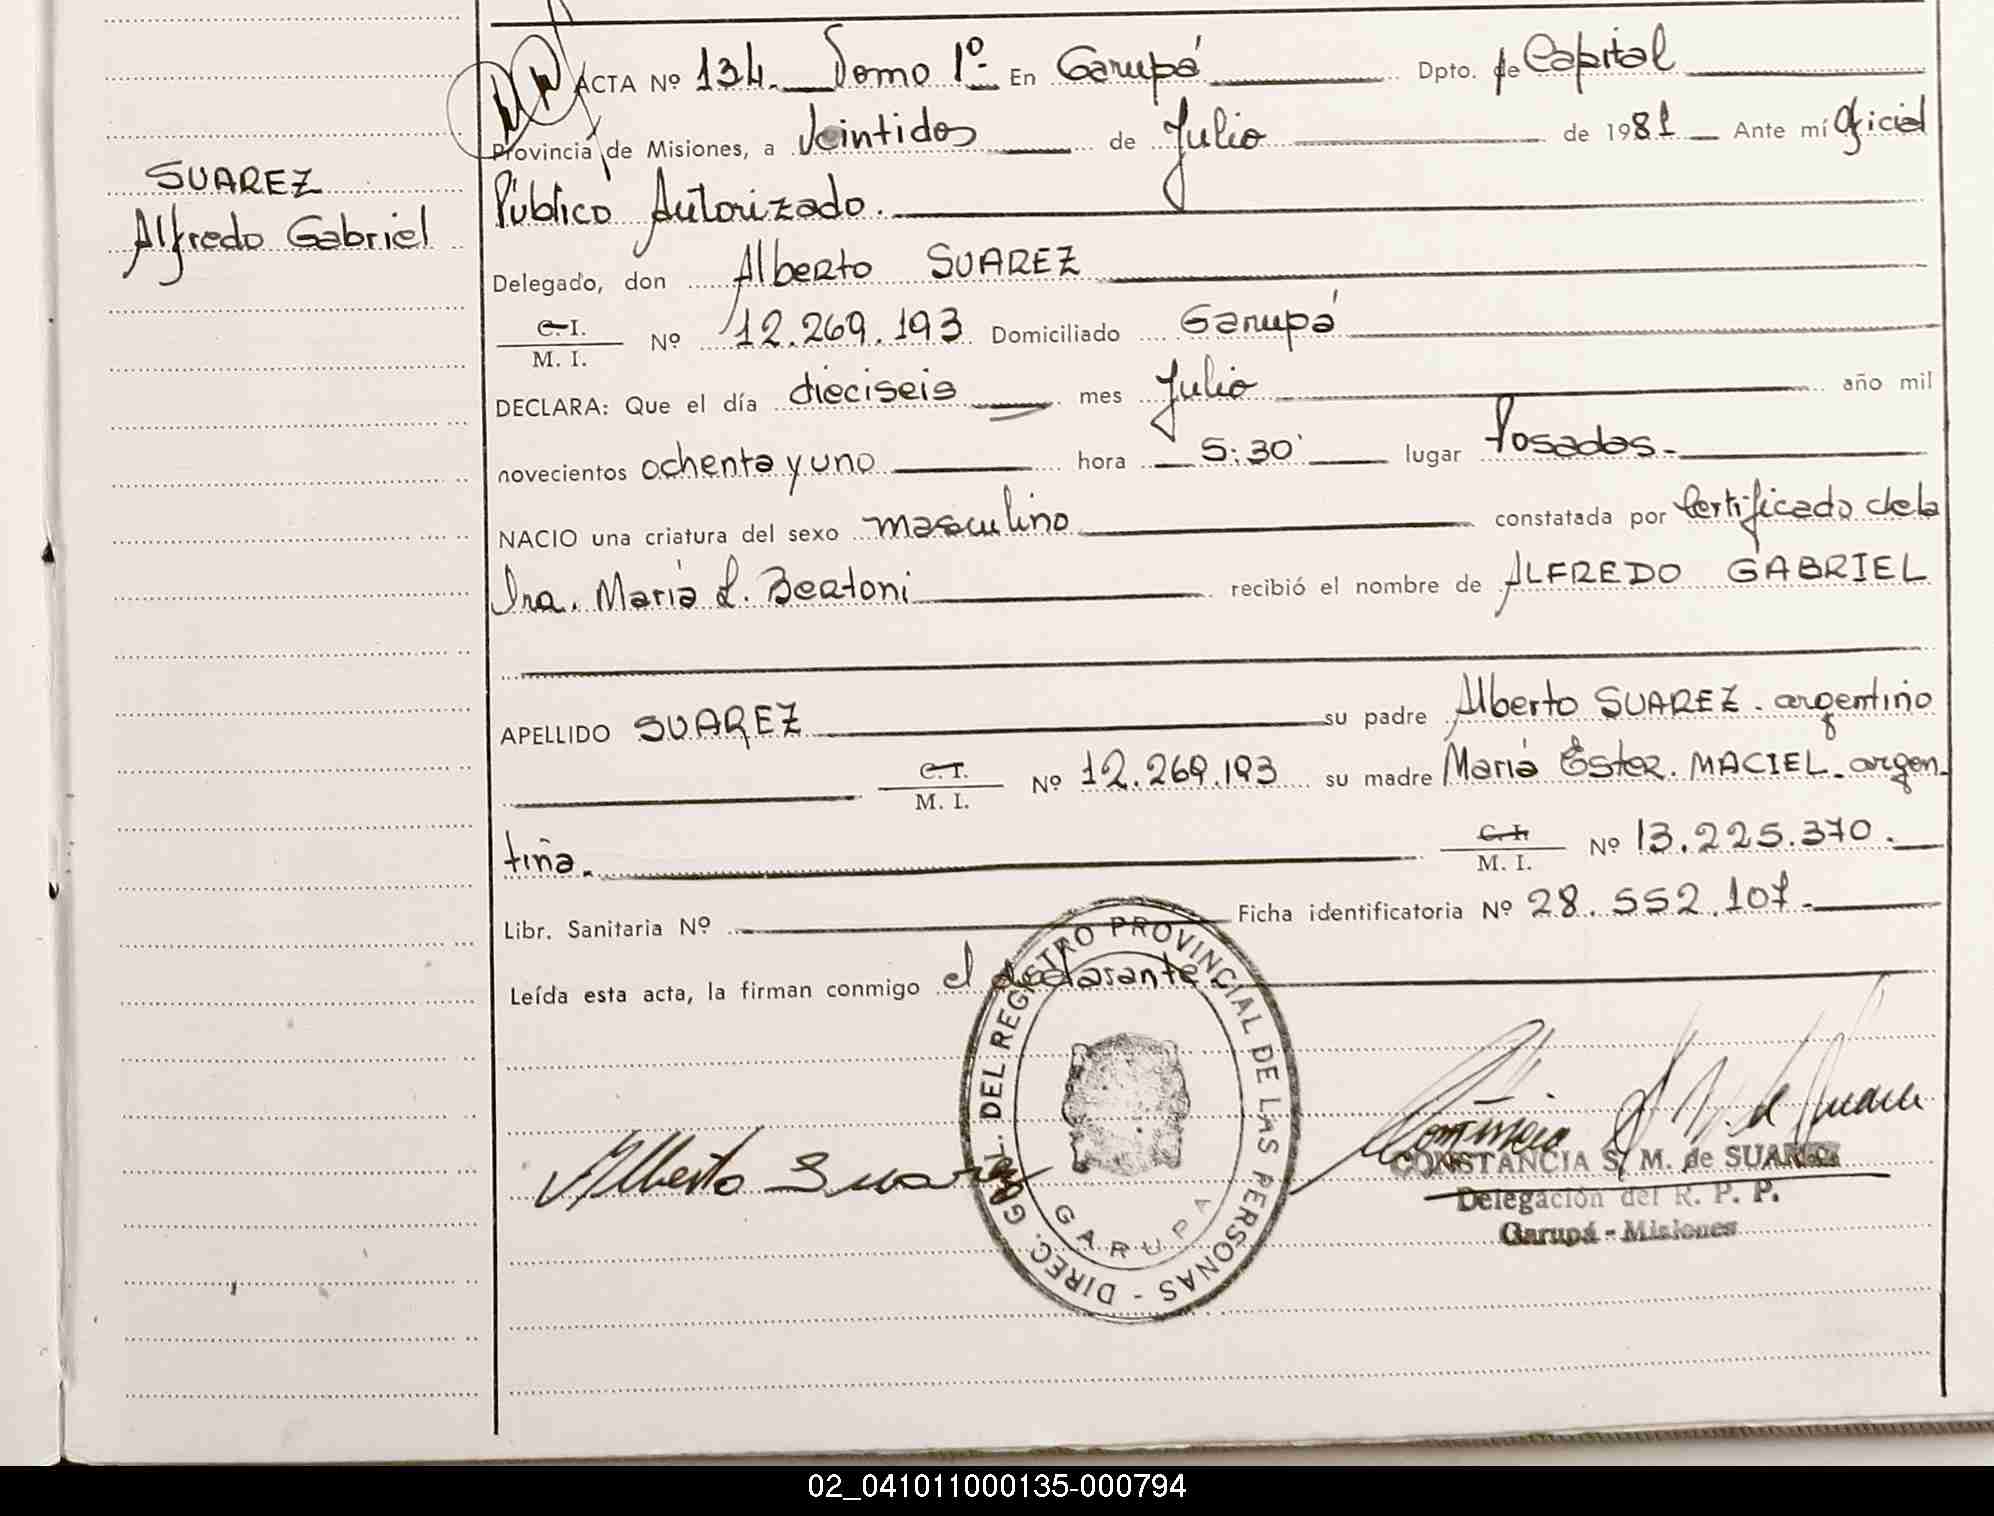 SUAREZ
Alfredo Gabriel
ACTA Nº 134. Tomo 1º En Garupá Dpto. de Capital
Provincia de Misiones, a Veintidos de Julio de 1981 Ante mí Oficial
Público Autorizado.
Delegado, don Alberto SUAREZ
C.I.
M. I. Nº 12.269.193 Domiciliado Garupá
DECLARA: Que el día dieciseis mes Julio año mil
novecientos ochenta y uno hora 5:30' lugar Posadas.
NACIO una criatura del sexo masculino constatada por Certificado de la
Dra. María L. Bertoni recibió el nombre de ALFREDO GABRIEL
APELLIDO SUAREZ su padre Alberto SUAREZ. argentino
C.I.
M. I. Nº 12.269.193 su madre María Ester. MACIEL. argen
tina. C.I.
M. I. Nº 13.225.370.
Libr. Sanitaria Nº Ficha identificatoria Nº 28.552.107.
Leída esta acta, la firman conmigo el declarante
DIREC. GRAL. DEL REGISTRO PROVINCIAL DE LAS PERSONAS -
GARUPA
Alberto Suarez
CONSTANCIA S. M. de SUAREZ
Delegación del R. P. P.
Garupá - Misiones
02_041011000135-000794